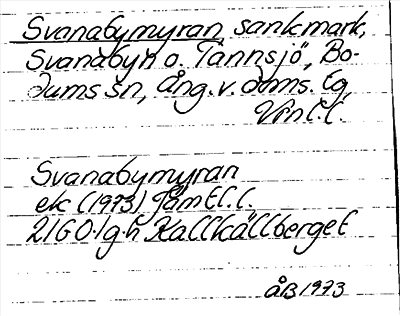 Svanabymyran, sankmark,
Svanabyn o. Tannsjö, Bo-
dums sn, Ång. v. doms. lg,
Vrnl. l.
Svanabymyran
ek (1973) Jämtl. l.
21G 0-1 g-h Kallkällberget
ÅB 1973